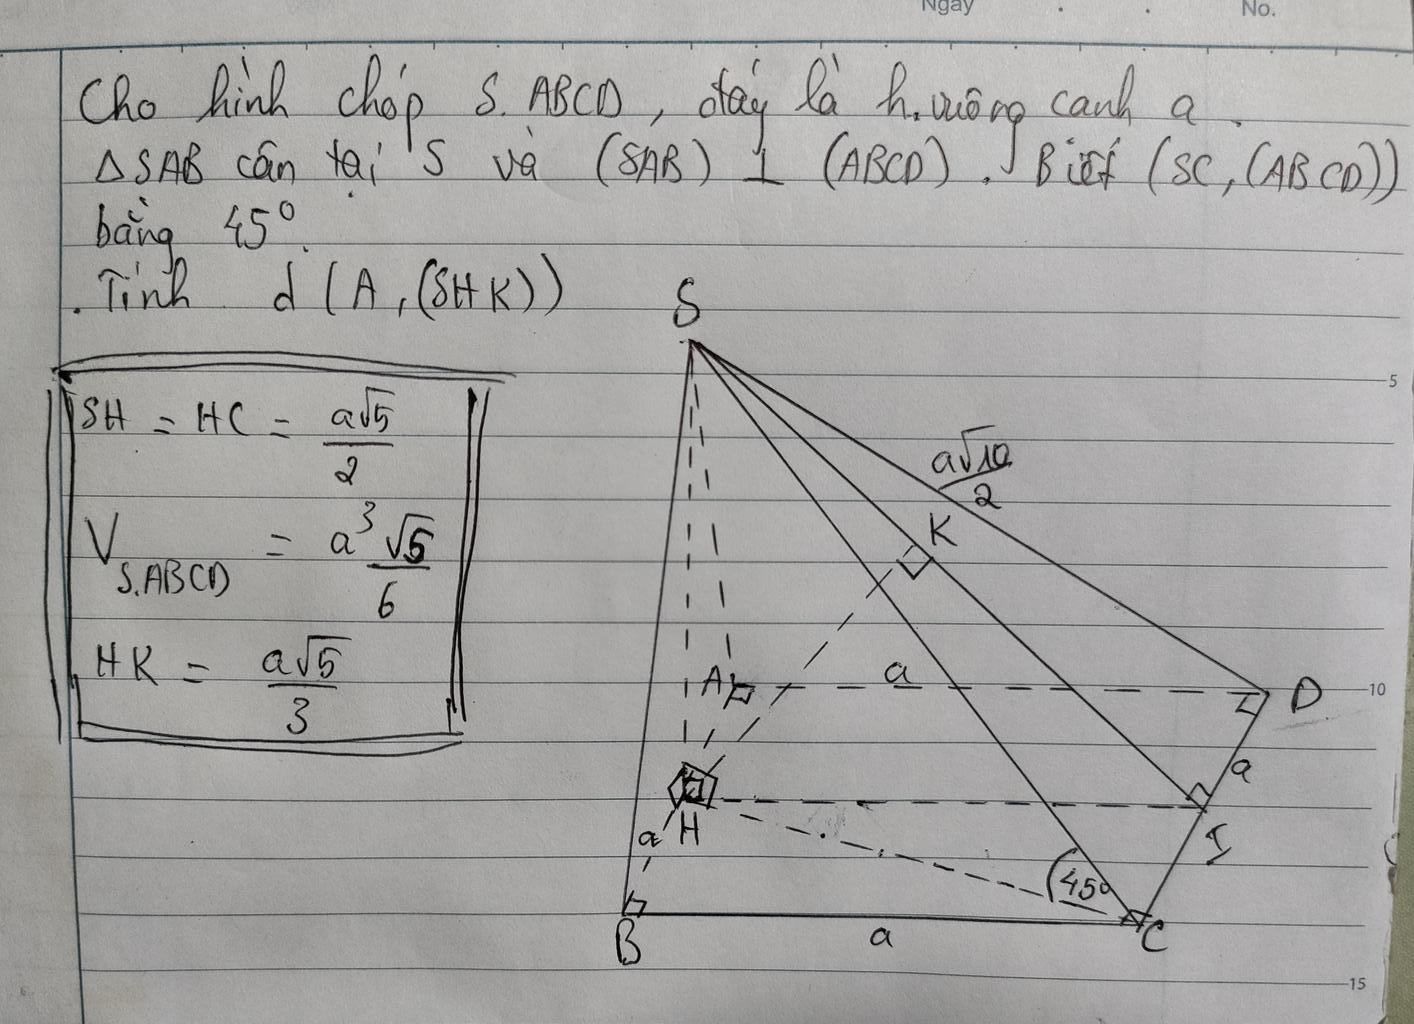 Ngày No.
Cho hình chóp S.ABCD, đáy là h.vuông cạnh a.
ΔSAB cân tại S và (SAB) ⊥ (ABCD). Biết (SC,(ABCD))
bằng 45°.
. Tính d(A,(SHK))
S
5
SH = HC = a√5/2
a√10/2
K
V S.ABCD = a³√5/6
HK = a√5/3
A a D 10
a
a H I
45°
B a C
15